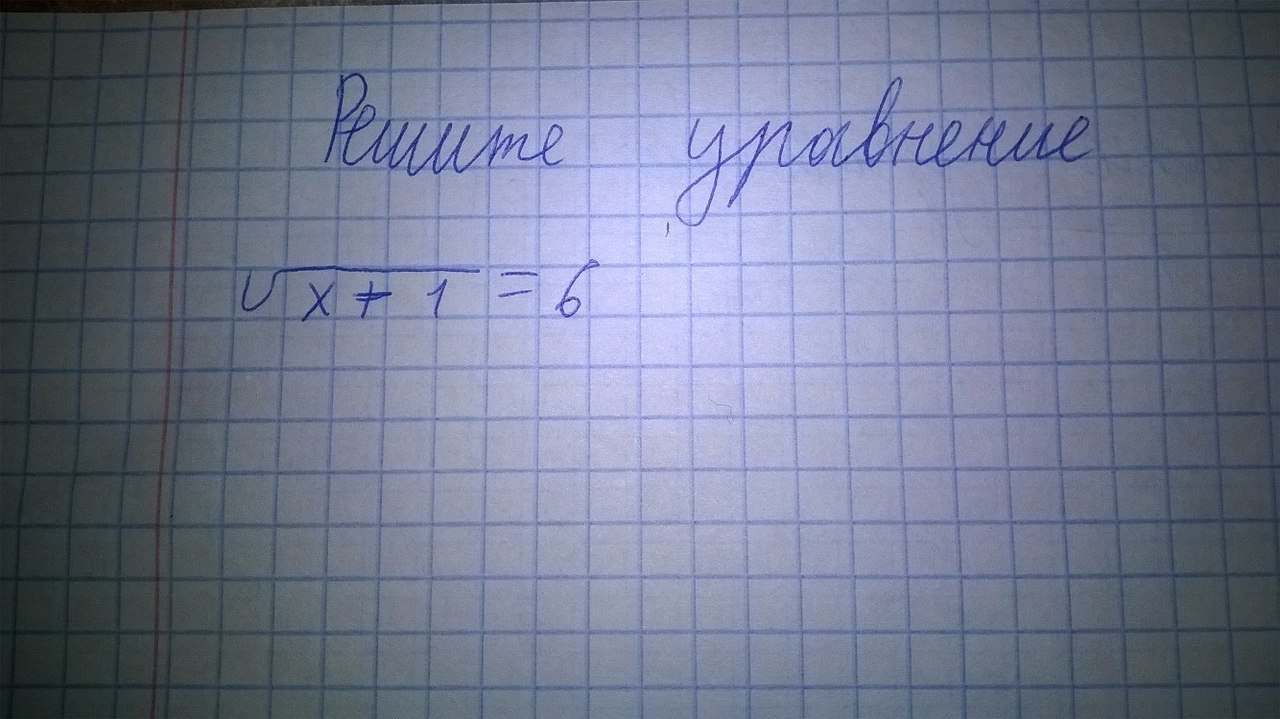 Решите уравнение
√x+1 = 6